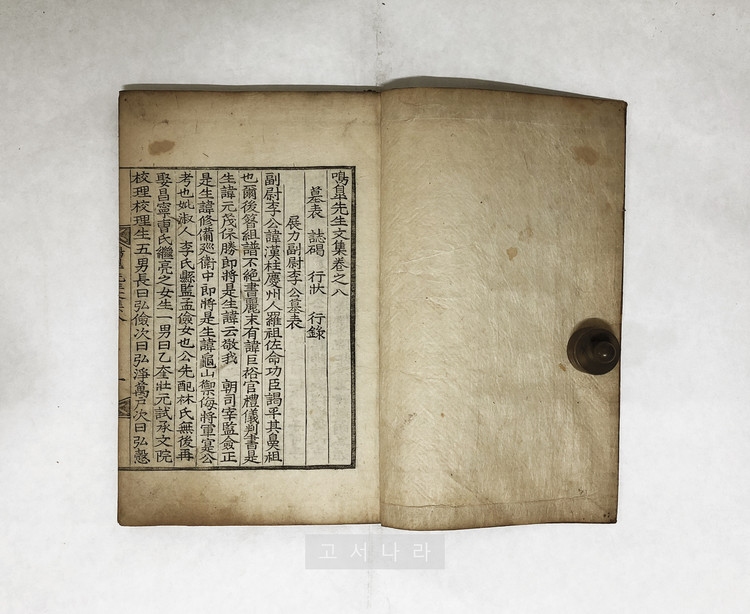 鳴皐先生文集卷之八
墓表 誌碣 行狀 行錄
展力副尉李公墓表
副尉李公諱漢柱慶州人羅祖佐命功臣謁平其鼻祖
也爾後簪組譜不絶書麗末有諱巨裕官禮儀判書是
生諱元茂保勝即將是生諱云敬我 朝司宰監僉正
是生諱修備廵衛中即將是生諱龜山禦侮將軍寔公
考也妣淑人李氏縣監孟儉女也公先配林氏無後再
娶昌寧曺氏繼亮之女生一男曰乙奎壯元試承文院
校理校理生五男長曰弘儉次曰弘淨萬戶次曰弘慤
고서나라